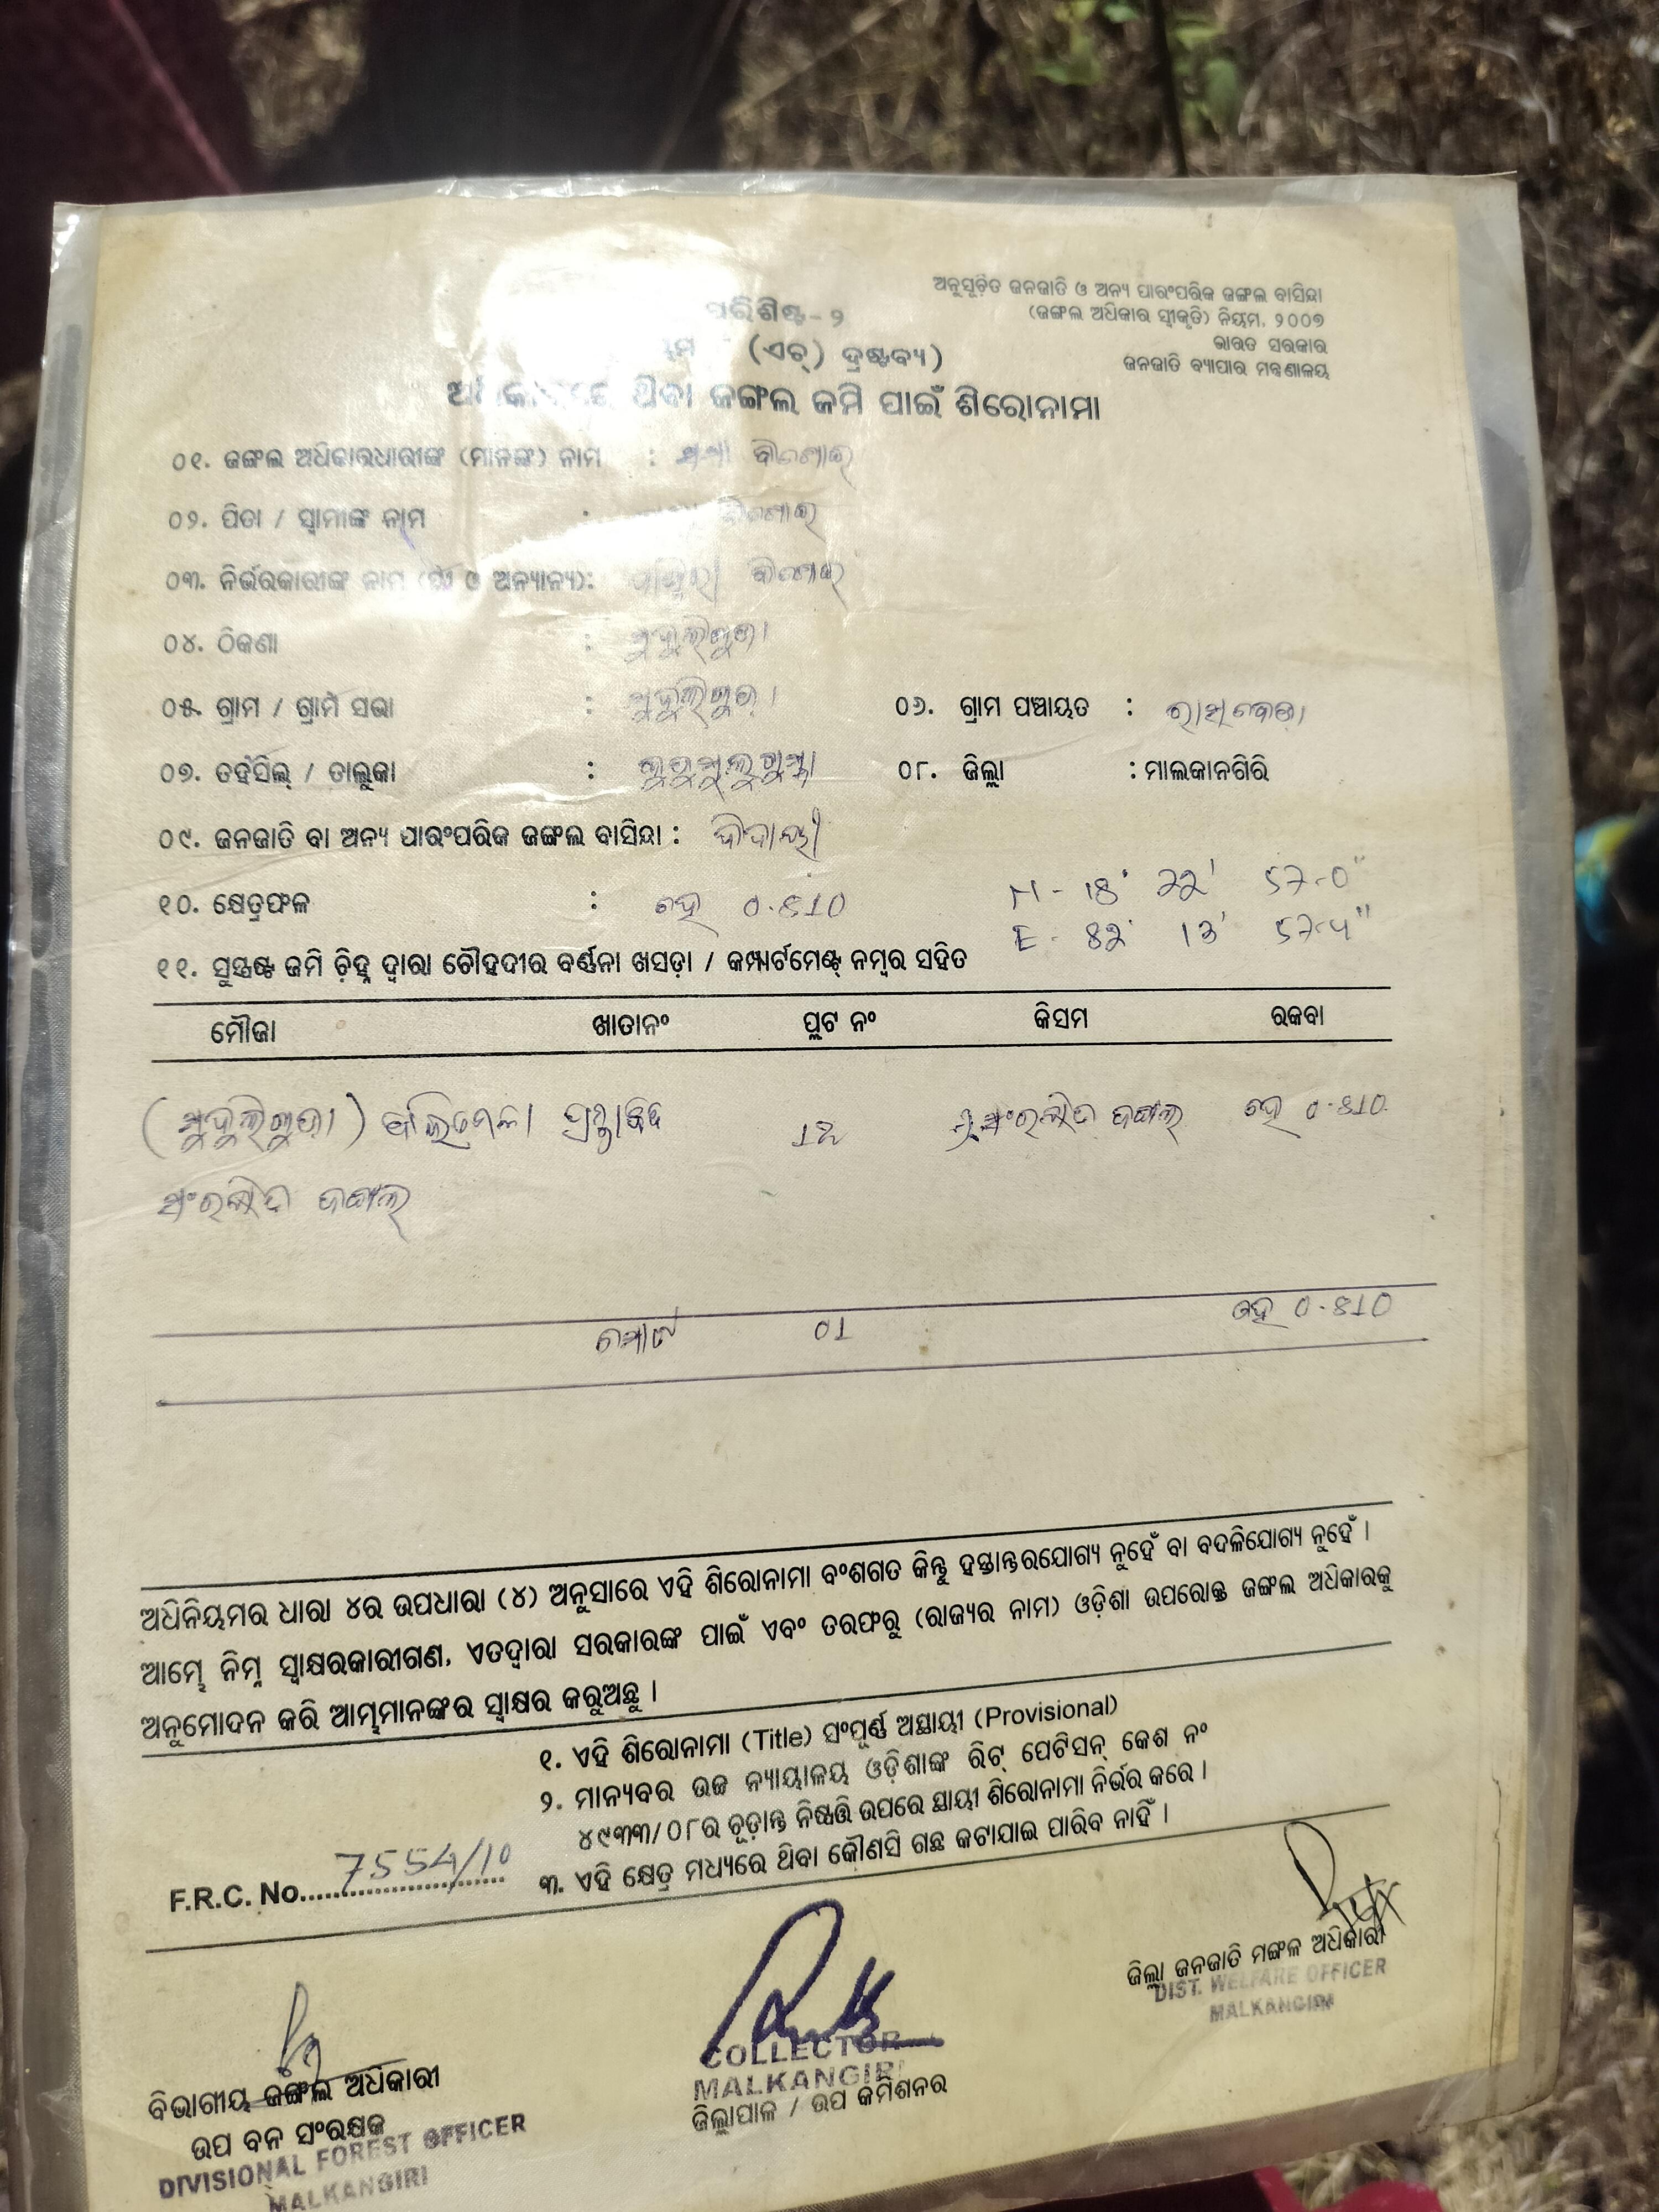 ଅନୁସୂଚିତ ଜନଜାତି ଓ ଅନ୍ୟ ପାରଂପରିକ ଜଙ୍ଗଲ ବାସିନ୍ଦା
(ଜଙ୍ଗଲ ଅଧିକାର ସ୍ୱୀକୃତି) ନିୟମ, ୨୦୦୭
ଭାରତ ସରକାର
ଜନଜାତି ବ୍ୟାପାର ମନ୍ତ୍ରଣାଳୟ
ପରିଶିଷ୍ଟ-୨
(ଏଚ୍) ଦ୍ରଷ୍ଟବ୍ୟ)
ଥିବା ଜଙ୍ଗଲ ଜମି ପାଇଁ ଶିରୋନାମା
୦୧. ଜଙ୍ଗଲ ଅଧିକାରଧାରୀଙ୍କ (ମାନଙ୍କ) ନାମ :
୦୨. ପିତା / ସ୍ୱାମୀଙ୍କ ନାମ :
୦୩. ନିର୍ଭରକାରୀଙ୍କ ନାମ (ସ୍ତ୍ରୀ ଓ ଅନ୍ୟାନ୍ୟ):
୦୪. ଠିକଣା : ମୁଦୁଲିଗୁଡା
୦୫. ଗ୍ରାମ / ଗ୍ରାମ ସଭା : ମୁଦୁଲିଗୁଡା ୦୬. ଗ୍ରାମ ପଞ୍ଚାୟତ : ରାସବେଡା
୦୭. ତହସିଲ୍ / ତାଲୁକା : କୁଡୁମୁଲୁଗୁମ୍ମା ୦୮. ଜିଲ୍ଲା : ମାଲକାନଗିରି
୦୯. ଜନଜାତି ବା ଅନ୍ୟ ପାରଂପରିକ ଜଙ୍ଗଲ ବାସିନ୍ଦା : ଦିଦାୟୀ
୧୦. କ୍ଷେତ୍ରଫଳ : ହେ ୦.୫୧୦ N - 18° 22' 57.0"
E - 82° 13' 57.4"
୧୧. ସୁସ୍ପଷ୍ଟ ଜମି ଚିହ୍ନ ଦ୍ୱାରା ଚୌହଦୀର ବର୍ଣ୍ଣନା ଖସଡ଼ା / କମ୍ପାର୍ଟମେଣ୍ଟ୍ ନମ୍ବର ସହିତ
ମୌଜା ଖାତାନଂ ପ୍ଲଟ ନଂ କିସମ ରକବା
(ମୁଦୁଲିଗୁଡା) ବାଲିମେଳା ପ୍ରସ୍ତାବିତ ସଂରକ୍ଷିତ ଜଙ୍ଗଲ ହେ ୦.୫୧୦
ସଂରକ୍ଷିତ ଜଙ୍ଗଲ୍
ମୋଟ ୦୧ ହେ ୦.୫୧୦
ଅଧିନିୟମର ଧାରା ୪ର ଉପଧାରା (୪) ଅନୁସାରେ ଏହି ଶିରୋନାମା ବଂଶଗତ କିନ୍ତୁ ହସ୍ତାନ୍ତରଯୋଗ୍ୟ ନୁହେଁ ବା ବଦଳିଯୋଗ୍ୟ ନୁହେଁ ।
ଆମ୍ଭେ ନିମ୍ନ ସ୍ୱାକ୍ଷରକାରୀଗଣ, ଏତଦ୍ୱାରା ସରକାରଙ୍କ ପାଇଁ ଏବଂ ତରଫରୁ (ରାଜ୍ୟର ନାମ) ଓଡ଼ିଶା ଉପରୋକ୍ତ ଜଙ୍ଗଲ ଅଧିକାରକୁ
ଅନୁମୋଦନ କରି ଆମ୍ଭମାନଙ୍କର ସ୍ୱାକ୍ଷର କରୁଅଛୁ ।
୧. ଏହି ଶିରୋନାମା (Title) ସଂପୂର୍ଣ୍ଣ ଅସ୍ଥାୟୀ (Provisional)
୨. ମାନ୍ୟବର ଉଚ୍ଚ ନ୍ୟାୟାଳୟ ଓଡ଼ିଶାଙ୍କ ରିଟ୍ ପେଟିସନ୍ କେଶ ନଂ
୪୯୩୩/୦୮ର ଚୂଡ଼ାନ୍ତ ନିଷ୍ପତ୍ତି ଉପରେ ସ୍ଥାୟୀ ଶିରୋନାମା ନିର୍ଭର କରେ ।
୩. ଏହି କ୍ଷେତ୍ର ମଧ୍ୟରେ ଥିବା କୌଣସି ଗଛ କଟାଯାଇ ପାରିବ ନାହିଁ ।
F.R.C. No. 7554/10
ଜିଲ୍ଲା ଜନଜାତି ମଙ୍ଗଳ ଅଧିକାରୀ
DIST. WELFARE OFFICER
MALKANGIRI
COLLECTOR
MALKANGIRI
ଜିଲ୍ଲାପାଳ / ଉପ କମିଶନର
ବିଭାଗୀୟ ଜଙ୍ଗଲ ଅଧିକାରୀ
ଉପ ବନ ସଂରକ୍ଷକ
DIVISIONAL FOREST OFFICER
MALKANGIRI